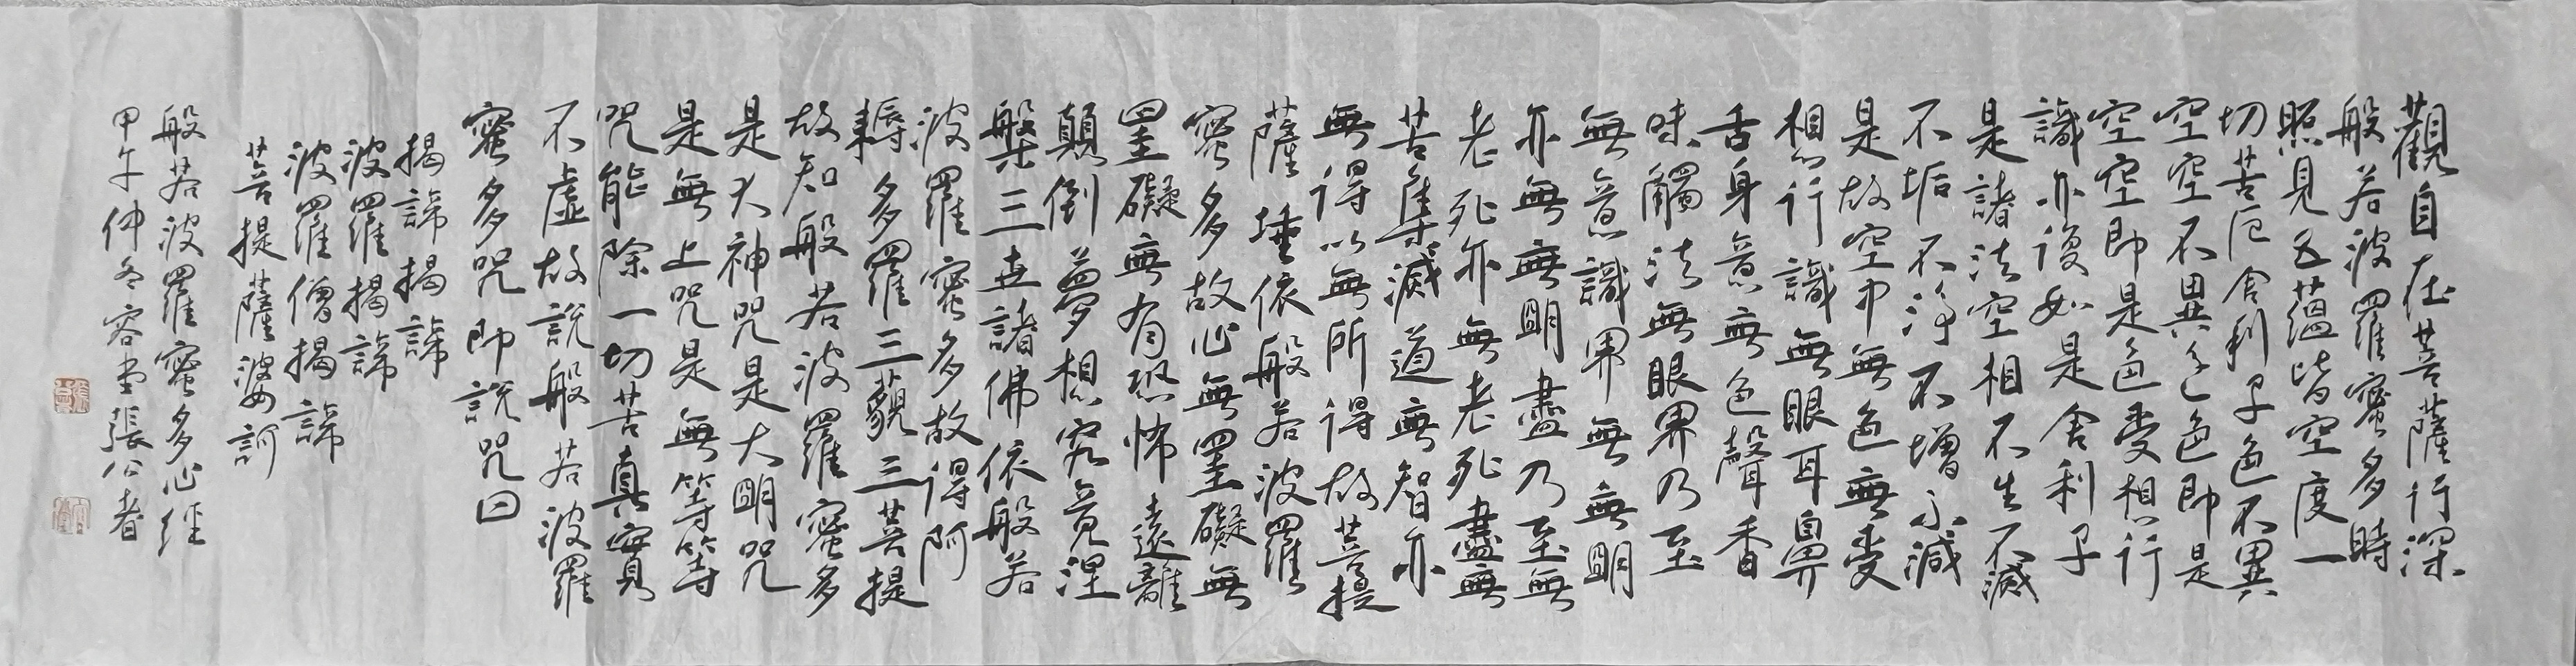 觀自在菩薩行深
般若波羅蜜多時
照見五蘊皆空度一
切苦厄舍利子色不異
空空不異色色即是
空空即是色受想行
識亦復如是舍利子
是諸法空相不生不滅
不垢不淨不增不減
是故空中無色無受
想行識無眼耳鼻
舌身意無色聲香
味觸法無眼界乃至
無意識界無無明
亦無無明盡乃至無
老死亦無老死盡無
苦集滅道無智亦
無得以無所得故菩提
薩埵依般若波羅
蜜多故心無罣礙無
罣礙無有恐怖遠離
顛倒夢想究竟涅
槃三世諸佛依般若
波羅蜜多故得阿
耨多羅三藐三菩提
故知般若波羅蜜多
是大神咒是大明咒
是無上咒是無等等
咒能除一切苦真實
不虛故說般若波羅
蜜多咒即說咒曰
揭諦揭諦
波羅揭諦
波羅僧揭諦
菩提薩婆訶
般若波羅蜜多心經
甲午仲冬容堂張公者